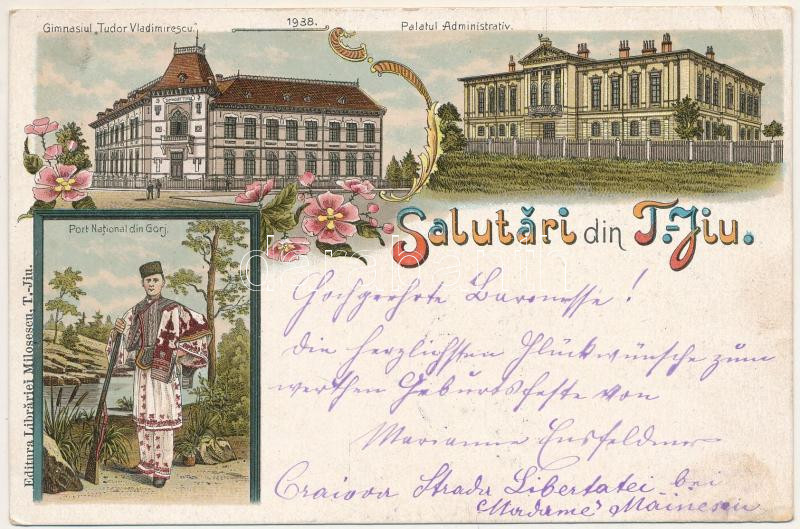 Gimnasiul „Tudor Vladimirescu."
1938.
Palatul Administrativ.
Port Național din Gorj.
Salutări din T.-Jiu.
Editura Librăriei Miloșescu, T.-Jiu.
Hochgeehrte Baronesse!
die herzlichsten Glückwünsche zum
werthen Geburtsfeste von
Marianne Ensfeldner
Craiova Strada Libertatei bei
"Madame" Mainescu